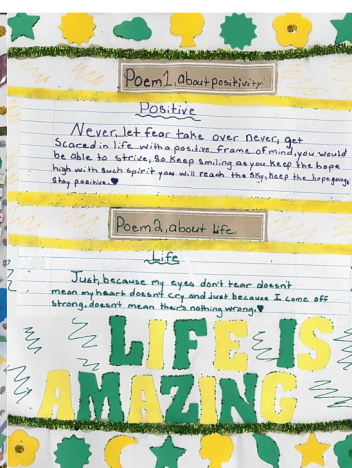 Poem 1, about positivity
Positive
Never, let fear take over never, get
scared in life with a positive frame of mind, you would
be able to strive, so keep smiling as you keep the hope
high with such spirit you will reach the sky, keep the hope going
stay positive.
Poem 2, about life
Life
Just, because my eyes don't tear doesn't
mean my heart doesn't cry and just because I come off
strong, doesn't mean their's nothing wrong.
LIFE IS
AMAZING